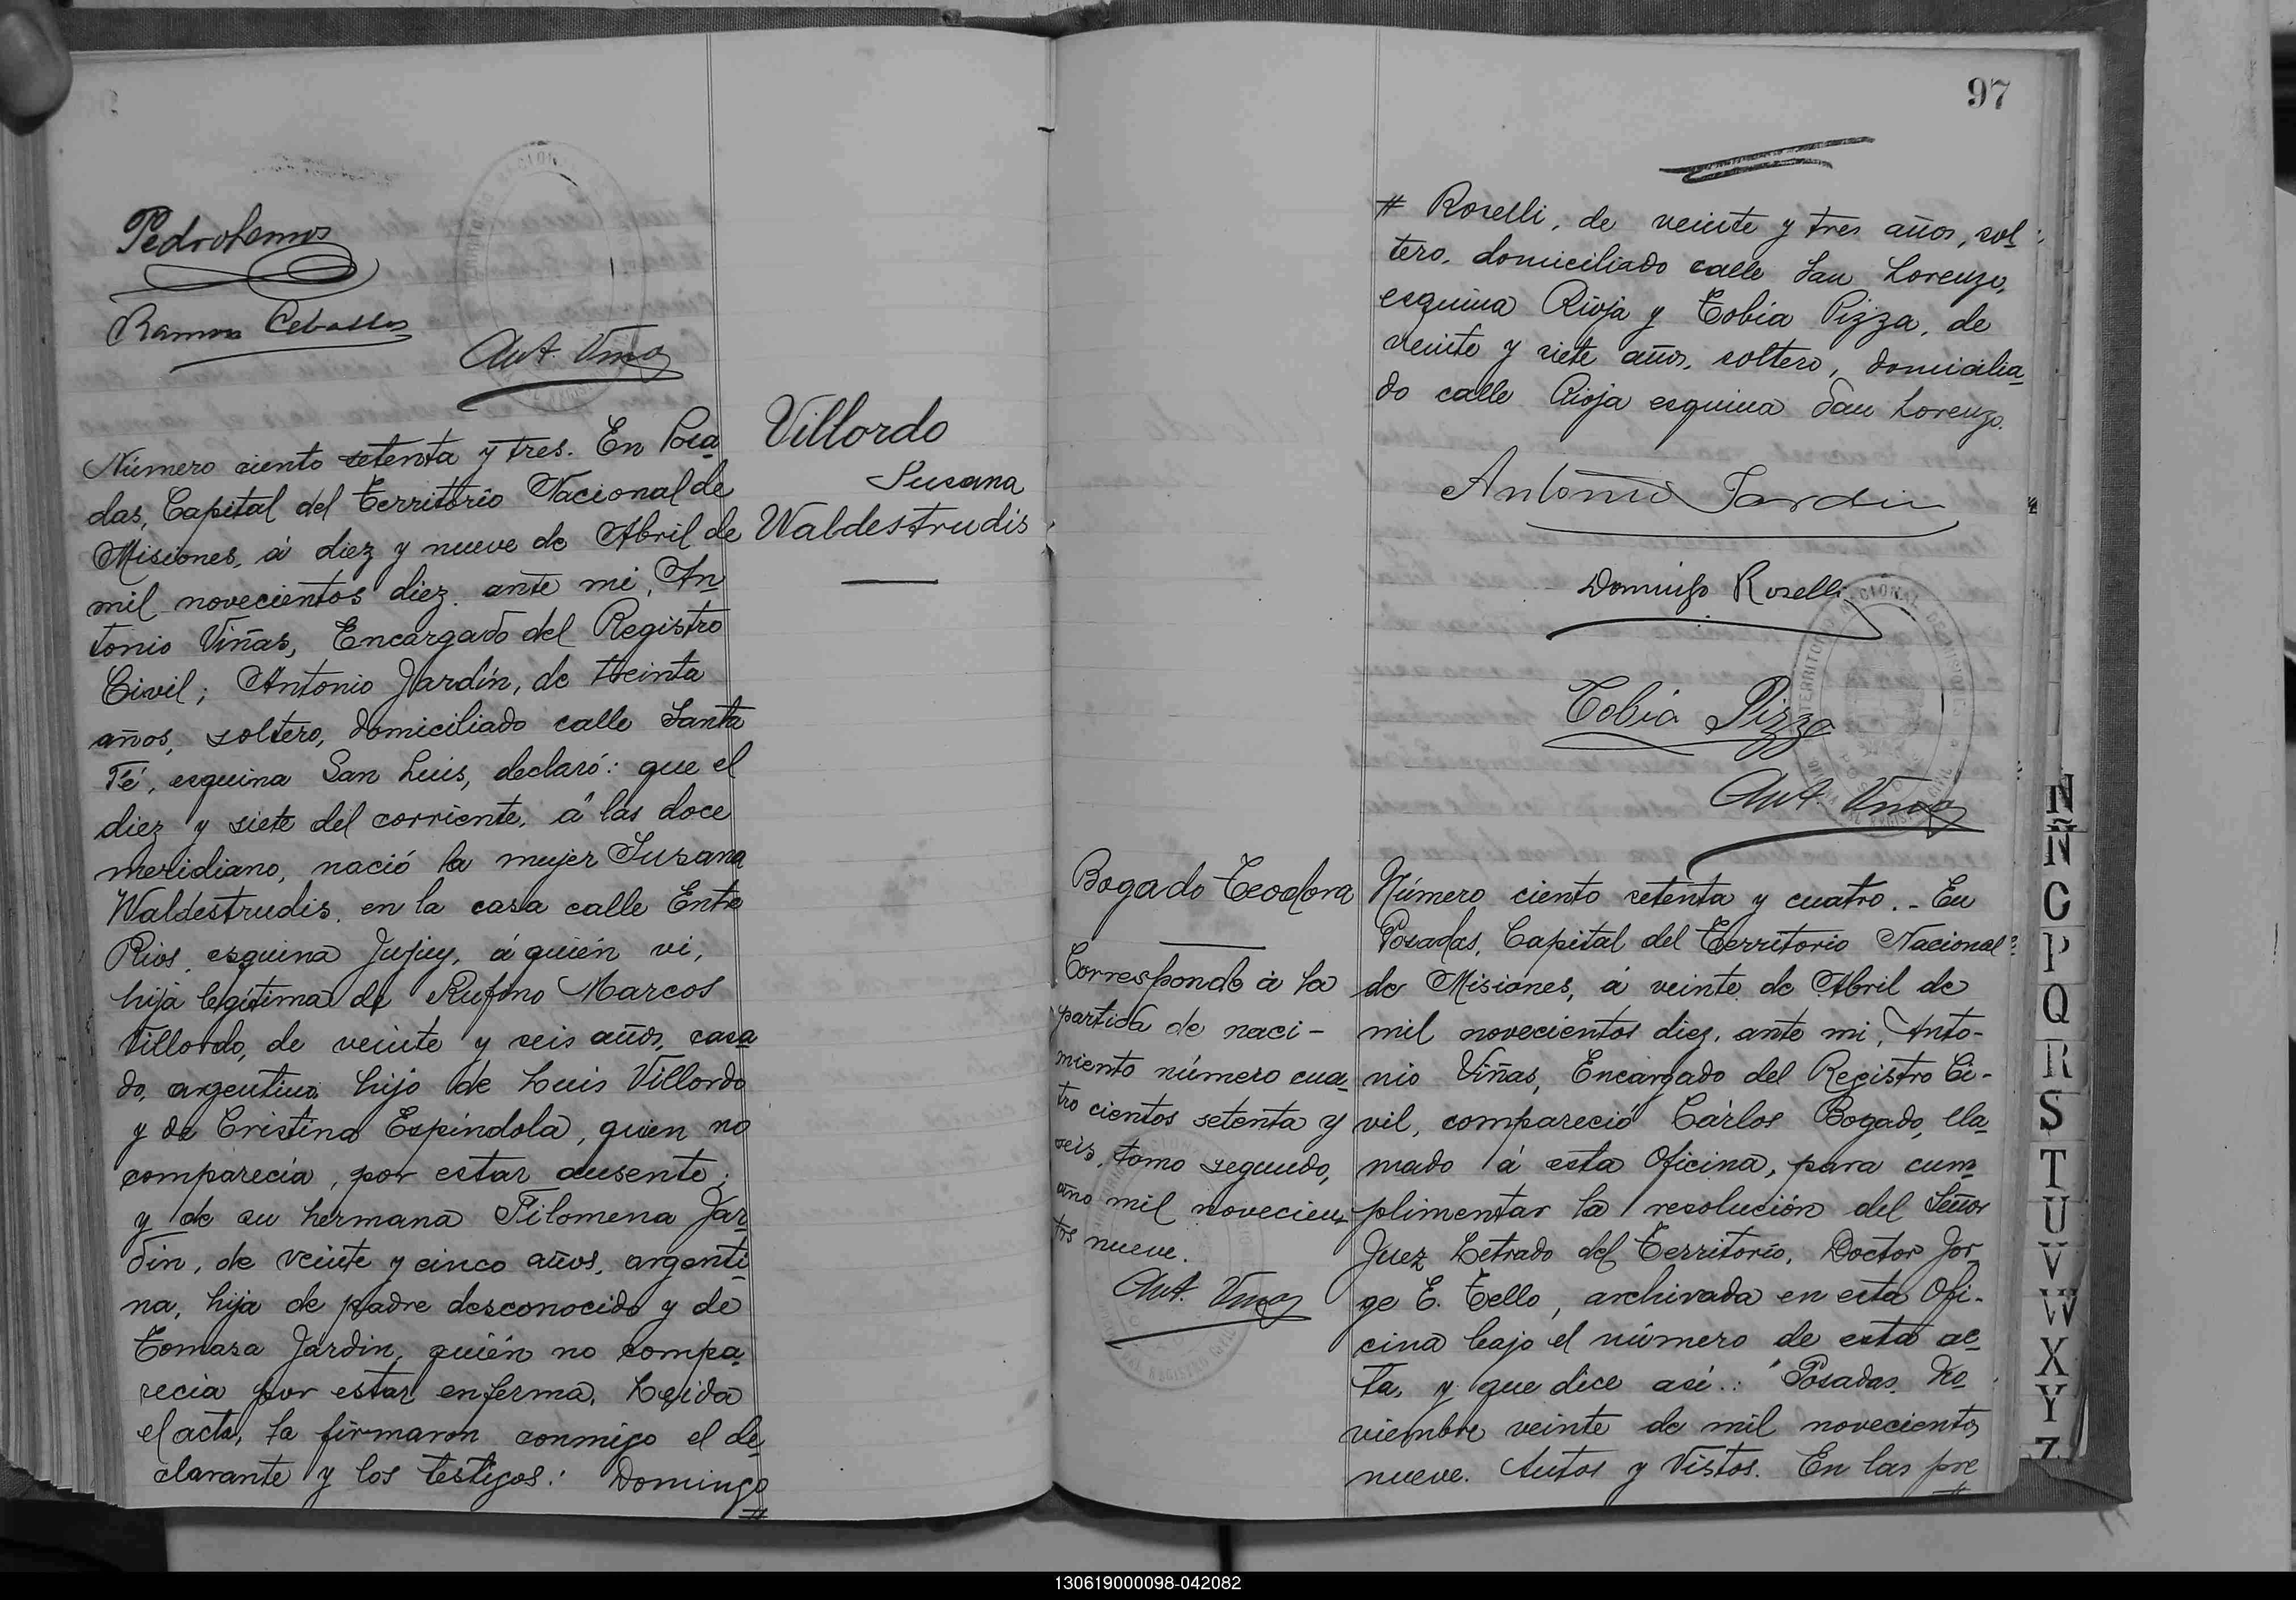 Pedro Lemos
Ramon Ceballos
Ant. Viñas
Número ciento setenta y tres. En Posa
das, Capital del Territorio Nacional de
Misiones, á diez y nueve de Abril de
mil novecientos diez. ante mi, An
tonio Viñas, Encargado del Registro
Civil; Antonio Jardín, de treinta
años, soltero, domiciliado calle Santa
Fé, esquina San Luis, declaró: que el
diez y siete del corriente, á las doce
meridiano, nació la mujer Susana
Waldestrudis. en la casa calle Entre
Rios, esquina Jujuy, á quién vi,
hija legítima de Rufino Marcos
Villordo, de veinte y seis años, casa
do, argentino, hijo de Luis Villordo
y de Cristina Espíndola, quien no
comparecia, por estar ausente;
y de su hermana Filomena Jar
din, de veinte y cinco años, argenti
na, hija de padre desconocido y de
Tomasa Jardin, quién no compa
recia por estar enferma. Leida
el acta, la firmaron conmigo el de
clarante y los testigos: Domingo
#
Villordo
Susana
Waldestrudis
97
# Roselli, de veinte y tres años, sol
tero, domiciliado calle San Lorenzo,
esquina Rioja y Tobia Pizza, de
veinte y siete años, soltero, domicilia
do calle Rioja esquina San Lorenzo.
Antonio Jardin
Domingo Roselli
Tobia Pizza
Ant. Viñas
Bogado Teodora
Corresponde á la
partida de naci-
miento número cua
tro cientos setenta y
seis, tomo segundo,
año mil novecien
tos nueve.
Ant. Viñas
Número ciento setenta y cuatro. - En
Posadas, Capital del Territorio Nacional
de Misiones, á veinte de Abril de
mil novecientos diez. ante mi, Anto-
nio Viñas, Encargado del Registro Ci-
vil, compareció Cárlos Bogado, lla
mado á esta Oficina, para cum
plimentar la resolución del Señor
Juez Letrado del Territorio, Doctor Jor
ge E. Tello, archivada en esta Ofi-
cina bajo el número de esta ac
ta, y que dice asi: "Posadas. No
viembre veinte de mil novecientos
nueve. Autos y Vistos. En las pre
#
N
Ñ
O
P
Q
R
S
T
U
V
W
X
Y
Z
130619000098-042082